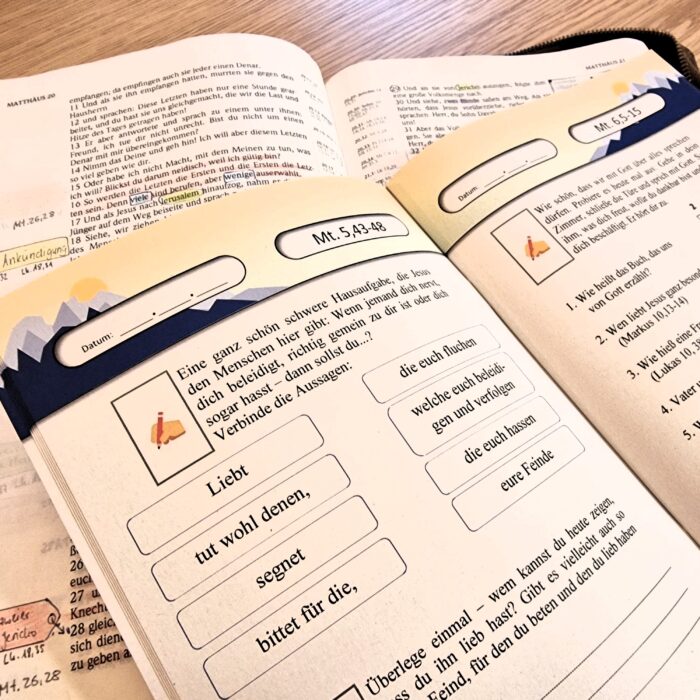 MATTHÄUS 20
empfangen; da empfingen auch sie jeder einen Denar.
11 Und als sie ihn empfangen hatten, murrten sie gegen den
Hausherrn
12 und sprachen: Diese Letzten haben nur eine Stunde gear
beitet, und du hast sie uns gleichgemacht, die wir die Last und
Hitze des Tages getragen haben!
13 Er aber antwortete und sprach zu einem unter ihnen:
Freund, ich tue dir nicht unrecht. Bist du nicht um einen
Denar mit mir übereingekommen?
14 Nimm das Deine und geh hin! Ich will aber diesem Letzten
so viel geben wie dir.
15 Oder habe ich nicht Macht, mit dem Meinen zu tun, was
ich will? Blickst du darum neidisch, weil ich gütig bin?
16 So werden die Letzten die Ersten und die Ersten die Letz-
ten sein. Denn viele sind berufen, aber wenige auserwählt.
17 Und als Jesus nach Jerusalem hinaufzog, nahm er
Jünger auf dem Weg beiseite und sprach
18 Siehe, wir ziehen
des Mens
Mt. 26,28
Ankündigung
32 Lk. 18,31
MATTHÄUS 21
29 Und als sie von Jericho auszogen, folgte ihm
eine große Volksmenge nach.
30 Und siehe, zwei Blinde saßen am Weg. Als
hörten, dass Jesus vorüberziehe,
sprachen: Herr, du Sohn Davids
31 Aber das Volk
Mt. 5,43-48
Datum:
Eine ganz schön schwere Hausaufgabe, die Jesus
den Menschen hier gibt: Wenn jemand dich nervt,
dich beleidigt, richtig gemein zu dir ist oder dich
sogar hasst – dann sollst du...?
Verbinde die Aussagen:
Liebt
tut wohl denen,
segnet
bittet für die,
die euch fluchen
welche euch beleidi-
gen und verfolgen
die euch hassen
eure Feinde
Überlege einmal – wem kannst du heute zeigen,
ss du ihn lieb hast? Gibt es vielleicht auch so
Feind, für den du beten und den du lieb haben
Mt. 6,5-15
Datum:
Wie schön, dass wir mit Gott über alles sprechen
dürfen. Probiere es heute mal aus: Gehe in dein
Zimmer, schließe die Türe und sprich mit Gott.
ihm, was dich freut, wofür du dankbar bist und
dich beschäftigt. Er hört dir zu.
1. Wie heißt das Buch, das uns
von Gott erzählt?
2. Wen liebt Jesus ganz beson
(Markus 10,13-14)
3. Wie hieß eine
(Lukas 10, 38
4. Vater
5. W
26
euch
27 u
Knech
28 gleic
sich diene
zu geben a
Jericho
Lk. 18,35
Mt. 26,28